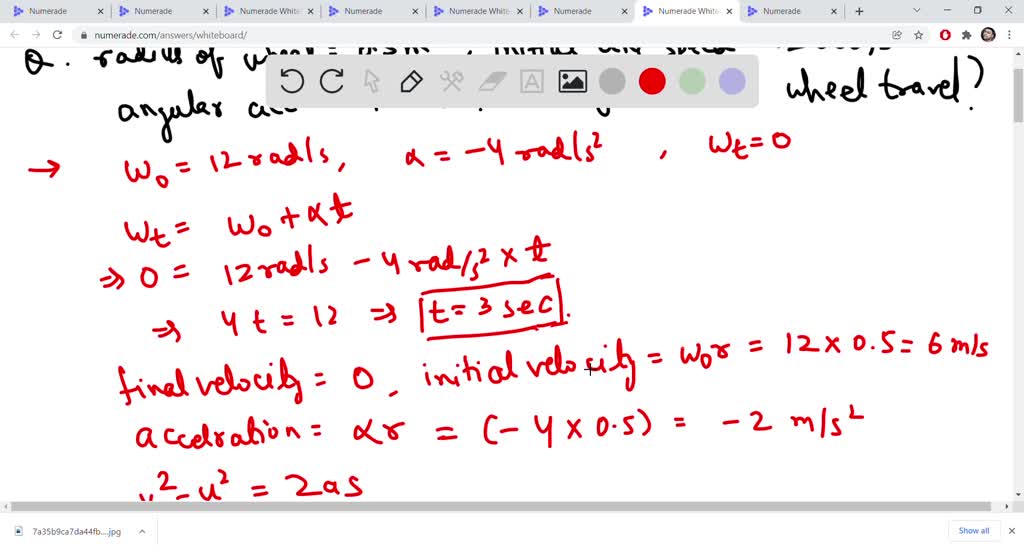 Numerade Numerade Numerade White Numerade Numerade White Numerade Numerade White Numerade
numerade.com/answers/whiteboard/
Q. radius of
angular wheel travel?
→ w₀ = 12 rad/s, α = -4 rad/s² , wt = 0
wt = w₀ + αt
⇒ 0 = 12 rad/s - 4 rad/s² × t
⇒ 4t = 12 ⇒ t = 3 sec.
final velocity = 0, initial velocity = w₀r = 12 × 0.5 = 6 m/s
accelration = αr = (-4 × 0.5) = -2 m/s²
v² - u² = 2as
7a35b9ca7da44fb....jpg Show all